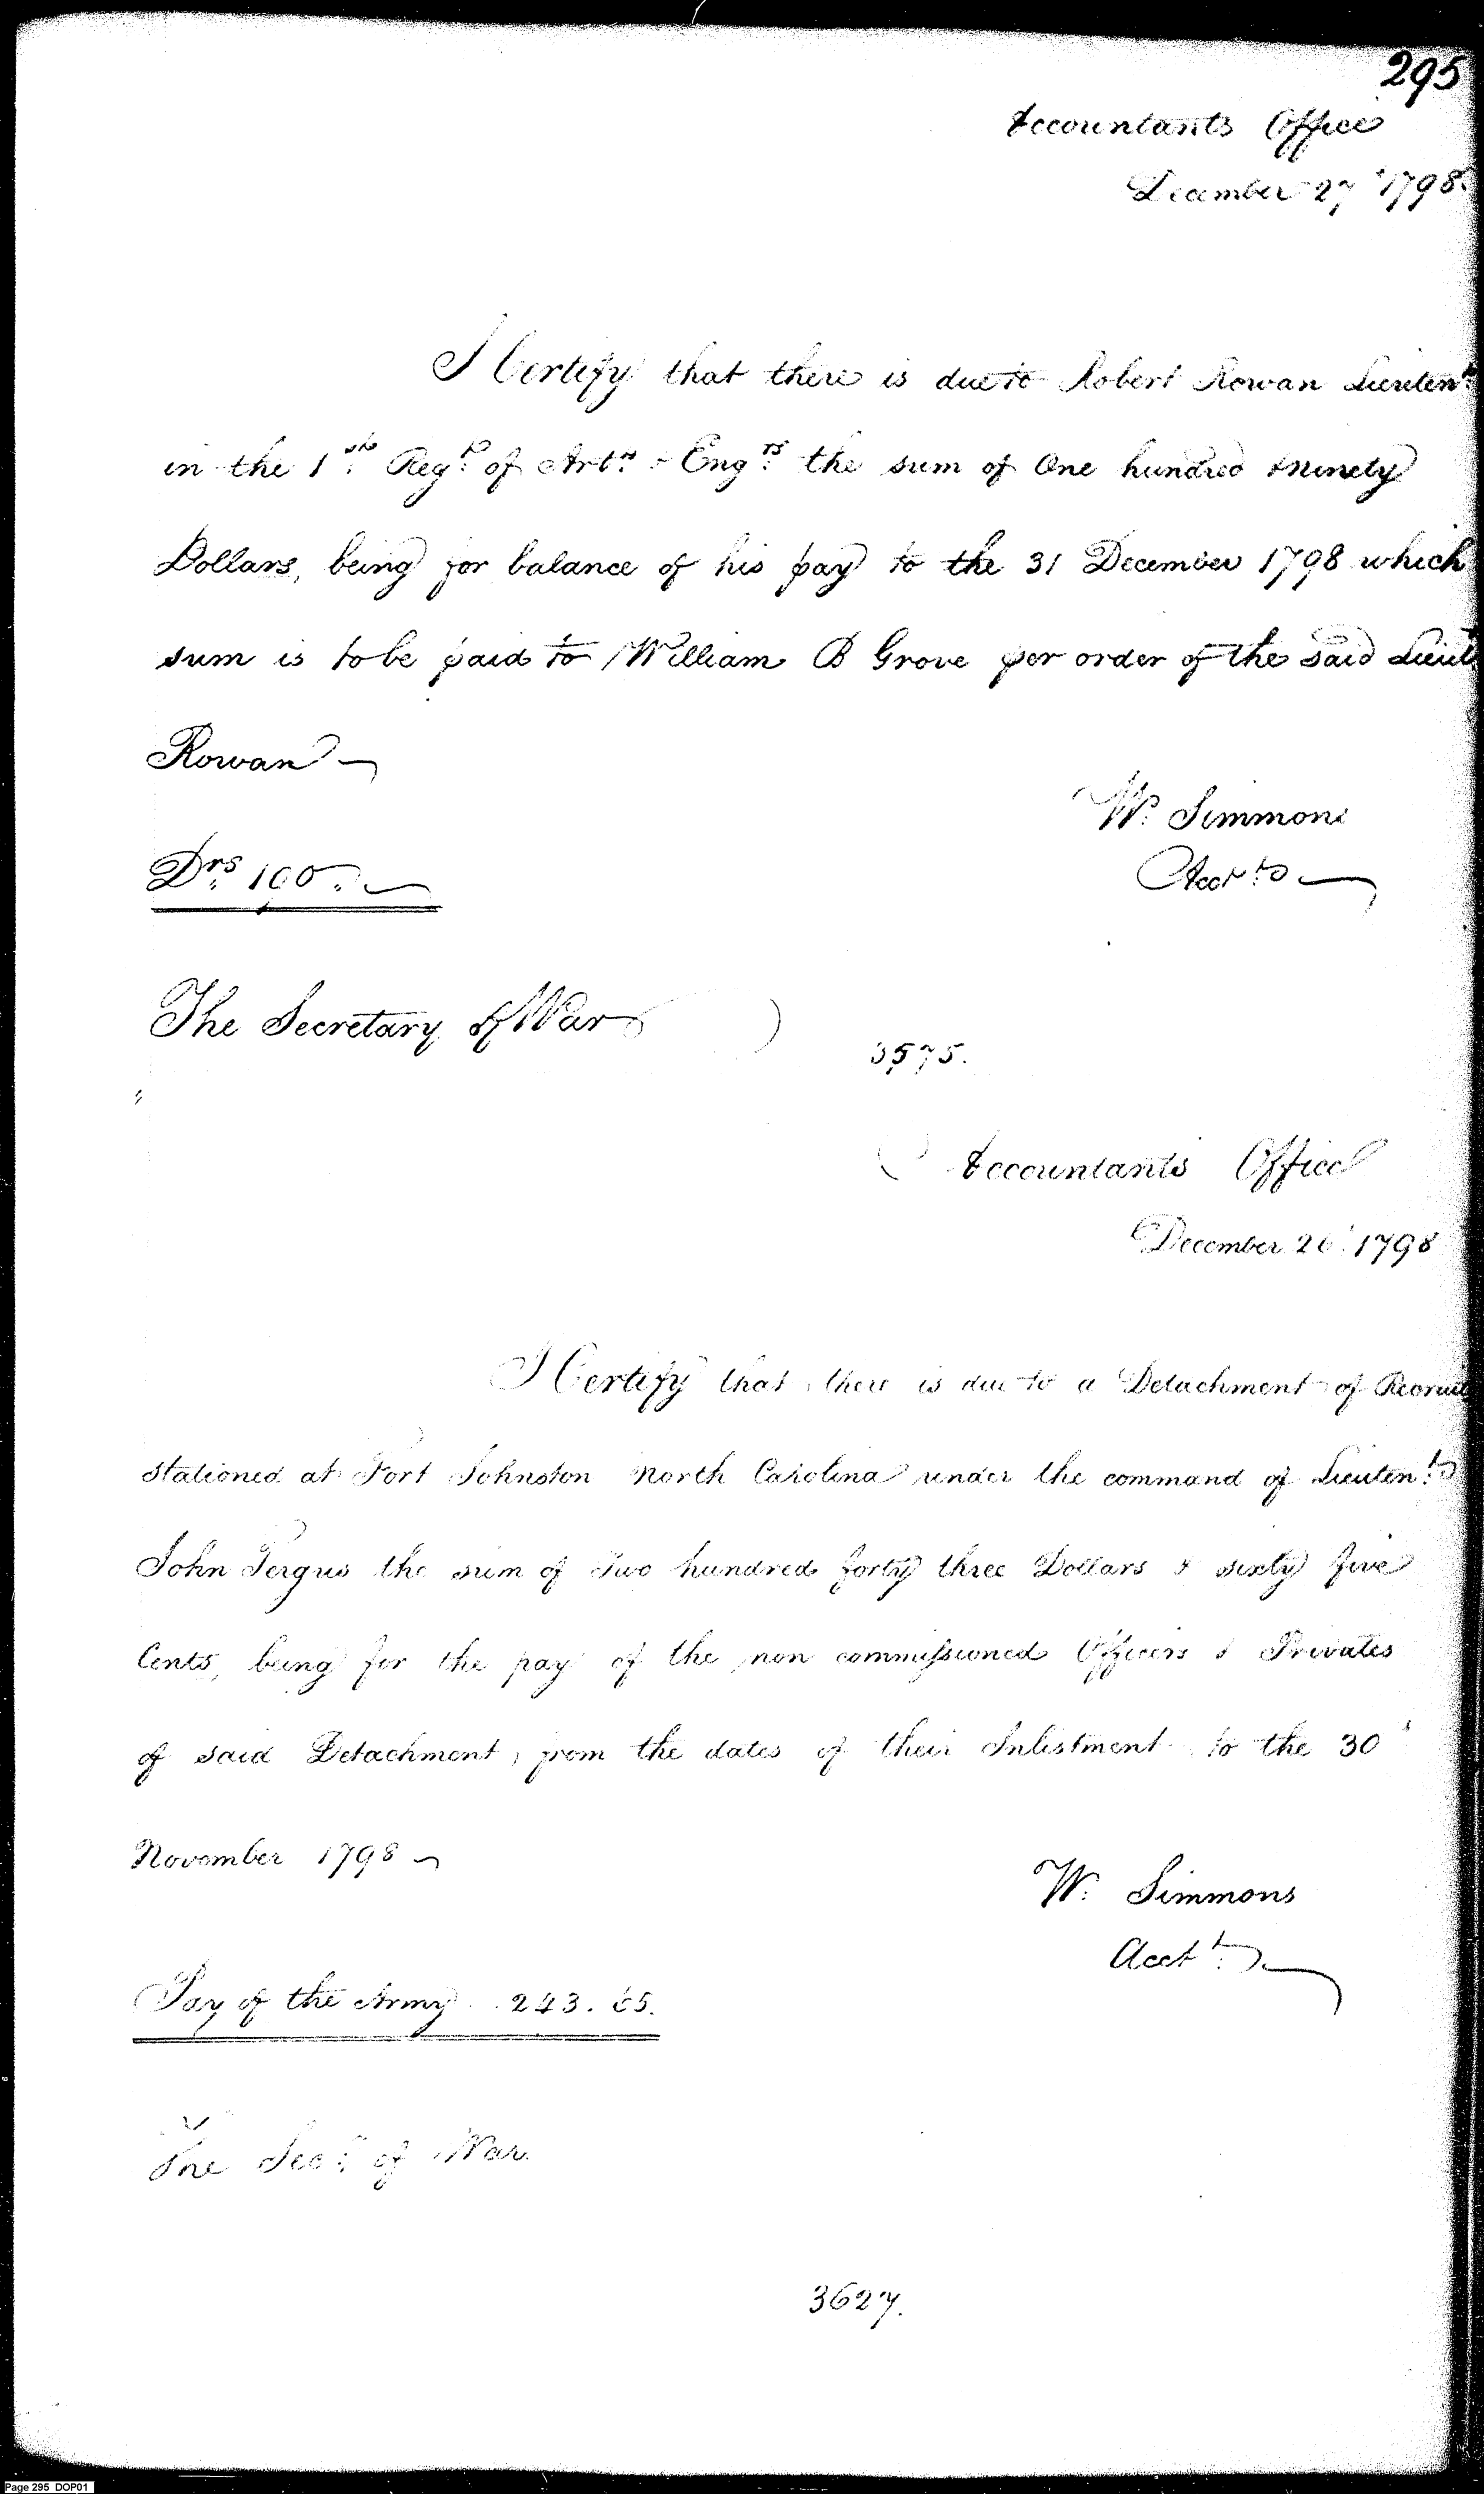 295
Accountants Office
December 27 1798
I Certify that there is due to Robert Rowan Lieutent
in the 1st Regt of Arts & Engrs the sum of One hundred & ninety
Dollars, being for balance of his pay to the 31 December 1798 which
sum is to be paid to William B Grove per order of the said Lieut
Rowan
Drs 190.
W. Simmons
Acctt
The Secretary of War
3575.
Accountants Office
December 26 1798
I Certify that there is due to a Detachment of Recruits
stationed at Fort Johnston North Carolina under the command of Lieutent
John Fergus the sum of Two hundred forty three Dollars & sixty five
Cents, being for the pay of the non commissioned Officers & Privates
of said Detachment, from the dates of their Inlistment to the 30
November 1798
W. Simmons
Acctt
Pay of the Army 243.65.
The Secy of War
3627.
Page 295 DOP01